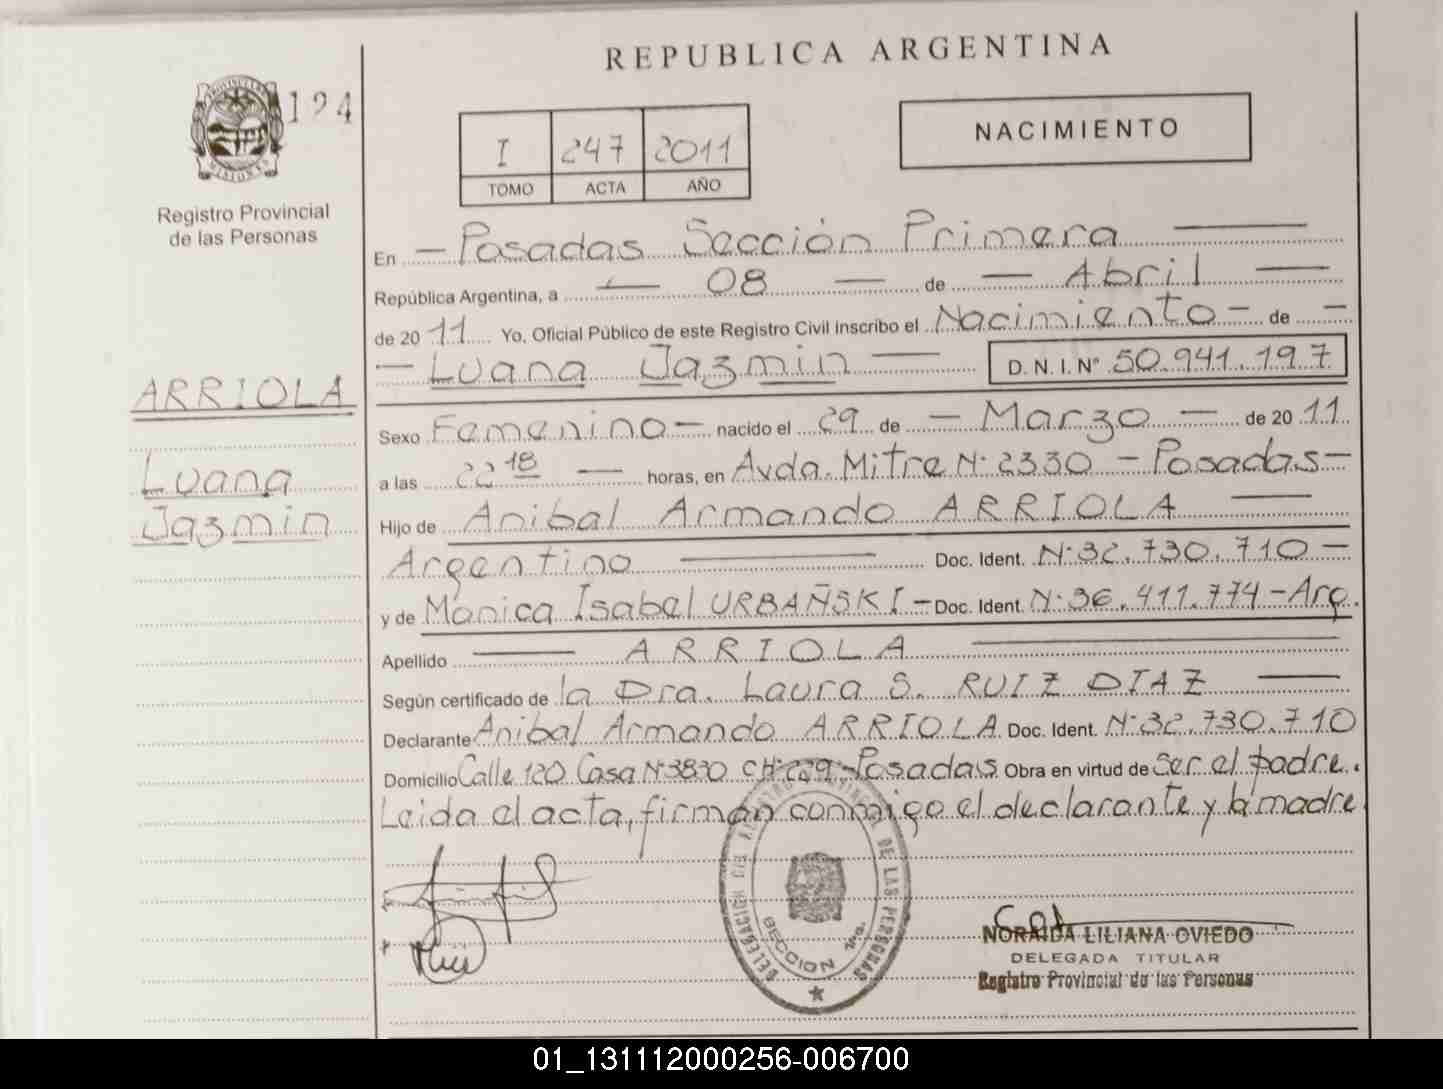 REPUBLICA ARGENTINA
PROVINCIA DE MISIONES
124
Registro Provincial
de las Personas
I 247 2011
TOMO ACTA AÑO
NACIMIENTO
En — Posadas Sección Primera —
República Argentina, a — 08 — de — Abril —
de 2011 Yo, Oficial Público de este Registro Civil inscribo el Nacimiento — de —
— Luana Jazmin — D. N. I. Nº 50.941.197
ARRIOLA
Luana
Jazmin
Sexo Femenino — nacido el 29 de — Marzo — de 2011
a las 22 18 — horas, en Avda. Mitre N° 2330 — Posadas —
Hijo de Anibal Armando ARRIOLA —
Argentino — Doc. Ident. N° 32.730.710 —
y de Monica Isabel URBAÑSKI — Doc. Ident. N° 36.411.774 — Arg.
Apellido — ARRIOLA —
Según certificado de la Dra. Laura S. RUIZ DIAZ —
Declarante Anibal Armando ARRIOLA Doc. Ident. N° 32.730.710
Domicilio Calle 120 Casa N° 3830 CH: 229 - Posadas Obra en virtud de ser el padre.
Leida el acta, firman conmigo el declarante y la madre.
DELEGACION DEL REGISTRO PROVINCIAL DE LAS PERSONAS
SECCION 1ra.
NORAIDA LILIANA OVIEDO
DELEGADA TITULAR
Registro Provincial de las Personas
01_131112000256-006700